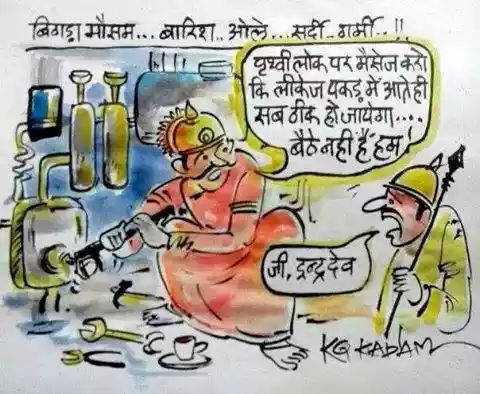 बिगड़ा मौसम... बारिश.. ओले... सर्दी-गर्मी..!!
पृथ्वी लोक पर मैसेज करो
कि लीकेज पकड़ में आते ही
सब ठीक हो जायेगा....
बैठे नहीं हैं हम!
जी, इन्द्रदेव
KG KADAM